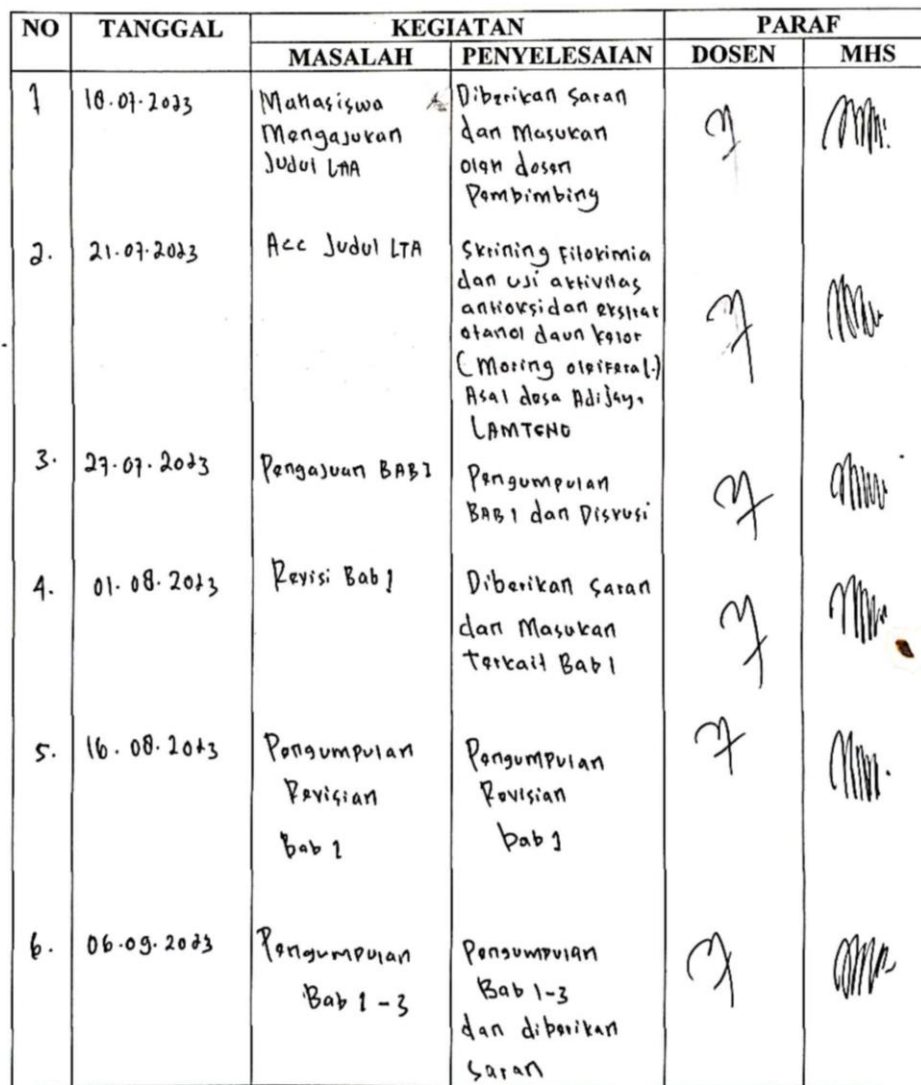 NO TANGGAL KEGIATAN PARAF
MASALAH PENYELESAIAN DOSEN MHS
1 18.07.2023 Mahasiswa Diberikan Saran
Mengajukan dan Masukan
Judul LTA oleh dosen
Pembimbing
2. 21.07.2023 Acc Judul LTA Skrining Fitokimia
dan uji aktivitas
antioksidan ekstrak
etanol daun kelor
(Moring oleifera L.)
Asal desa Adijaya
LAMTENG
3. 27.07.2023 Pengajuan BAB 1 Pengumpulan
BAB 1 dan Diskusi
4. 01.08.2023 Revisi Bab 1 Diberikan Saran
dan Masukan
Terkait Bab 1
5. 16.08.2023 Pengumpulan Pengumpulan
Revisian Revisian
Bab 1 bab 1
6. 06.09.2023 Pengumpulan Pengumpulan
Bab 1-3 Bab 1-3
dan diberikan
Saran